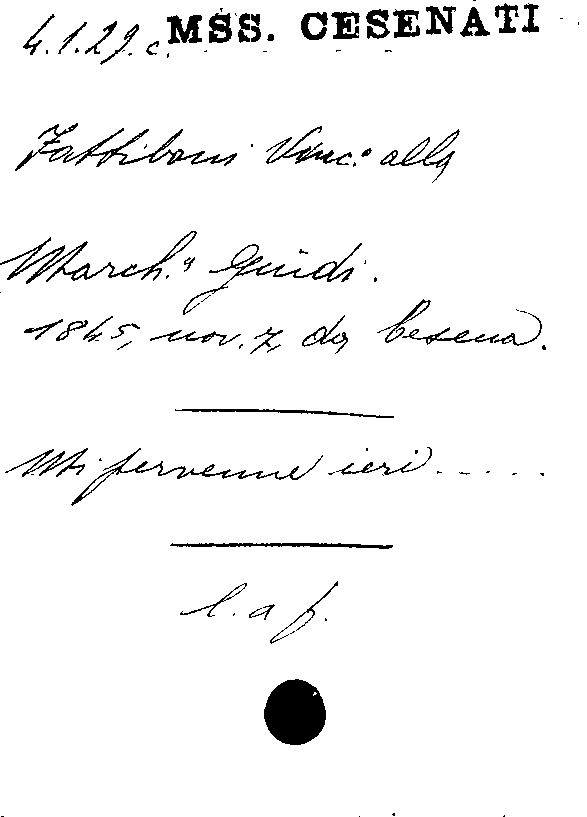 4.1.29.c. MSS. CESENATI
Fattiboni Vinc.º alla
March.ª Guidi.
1845, nov. 7, da Cesena.
Mi pervenne ieri.....
l. a f.